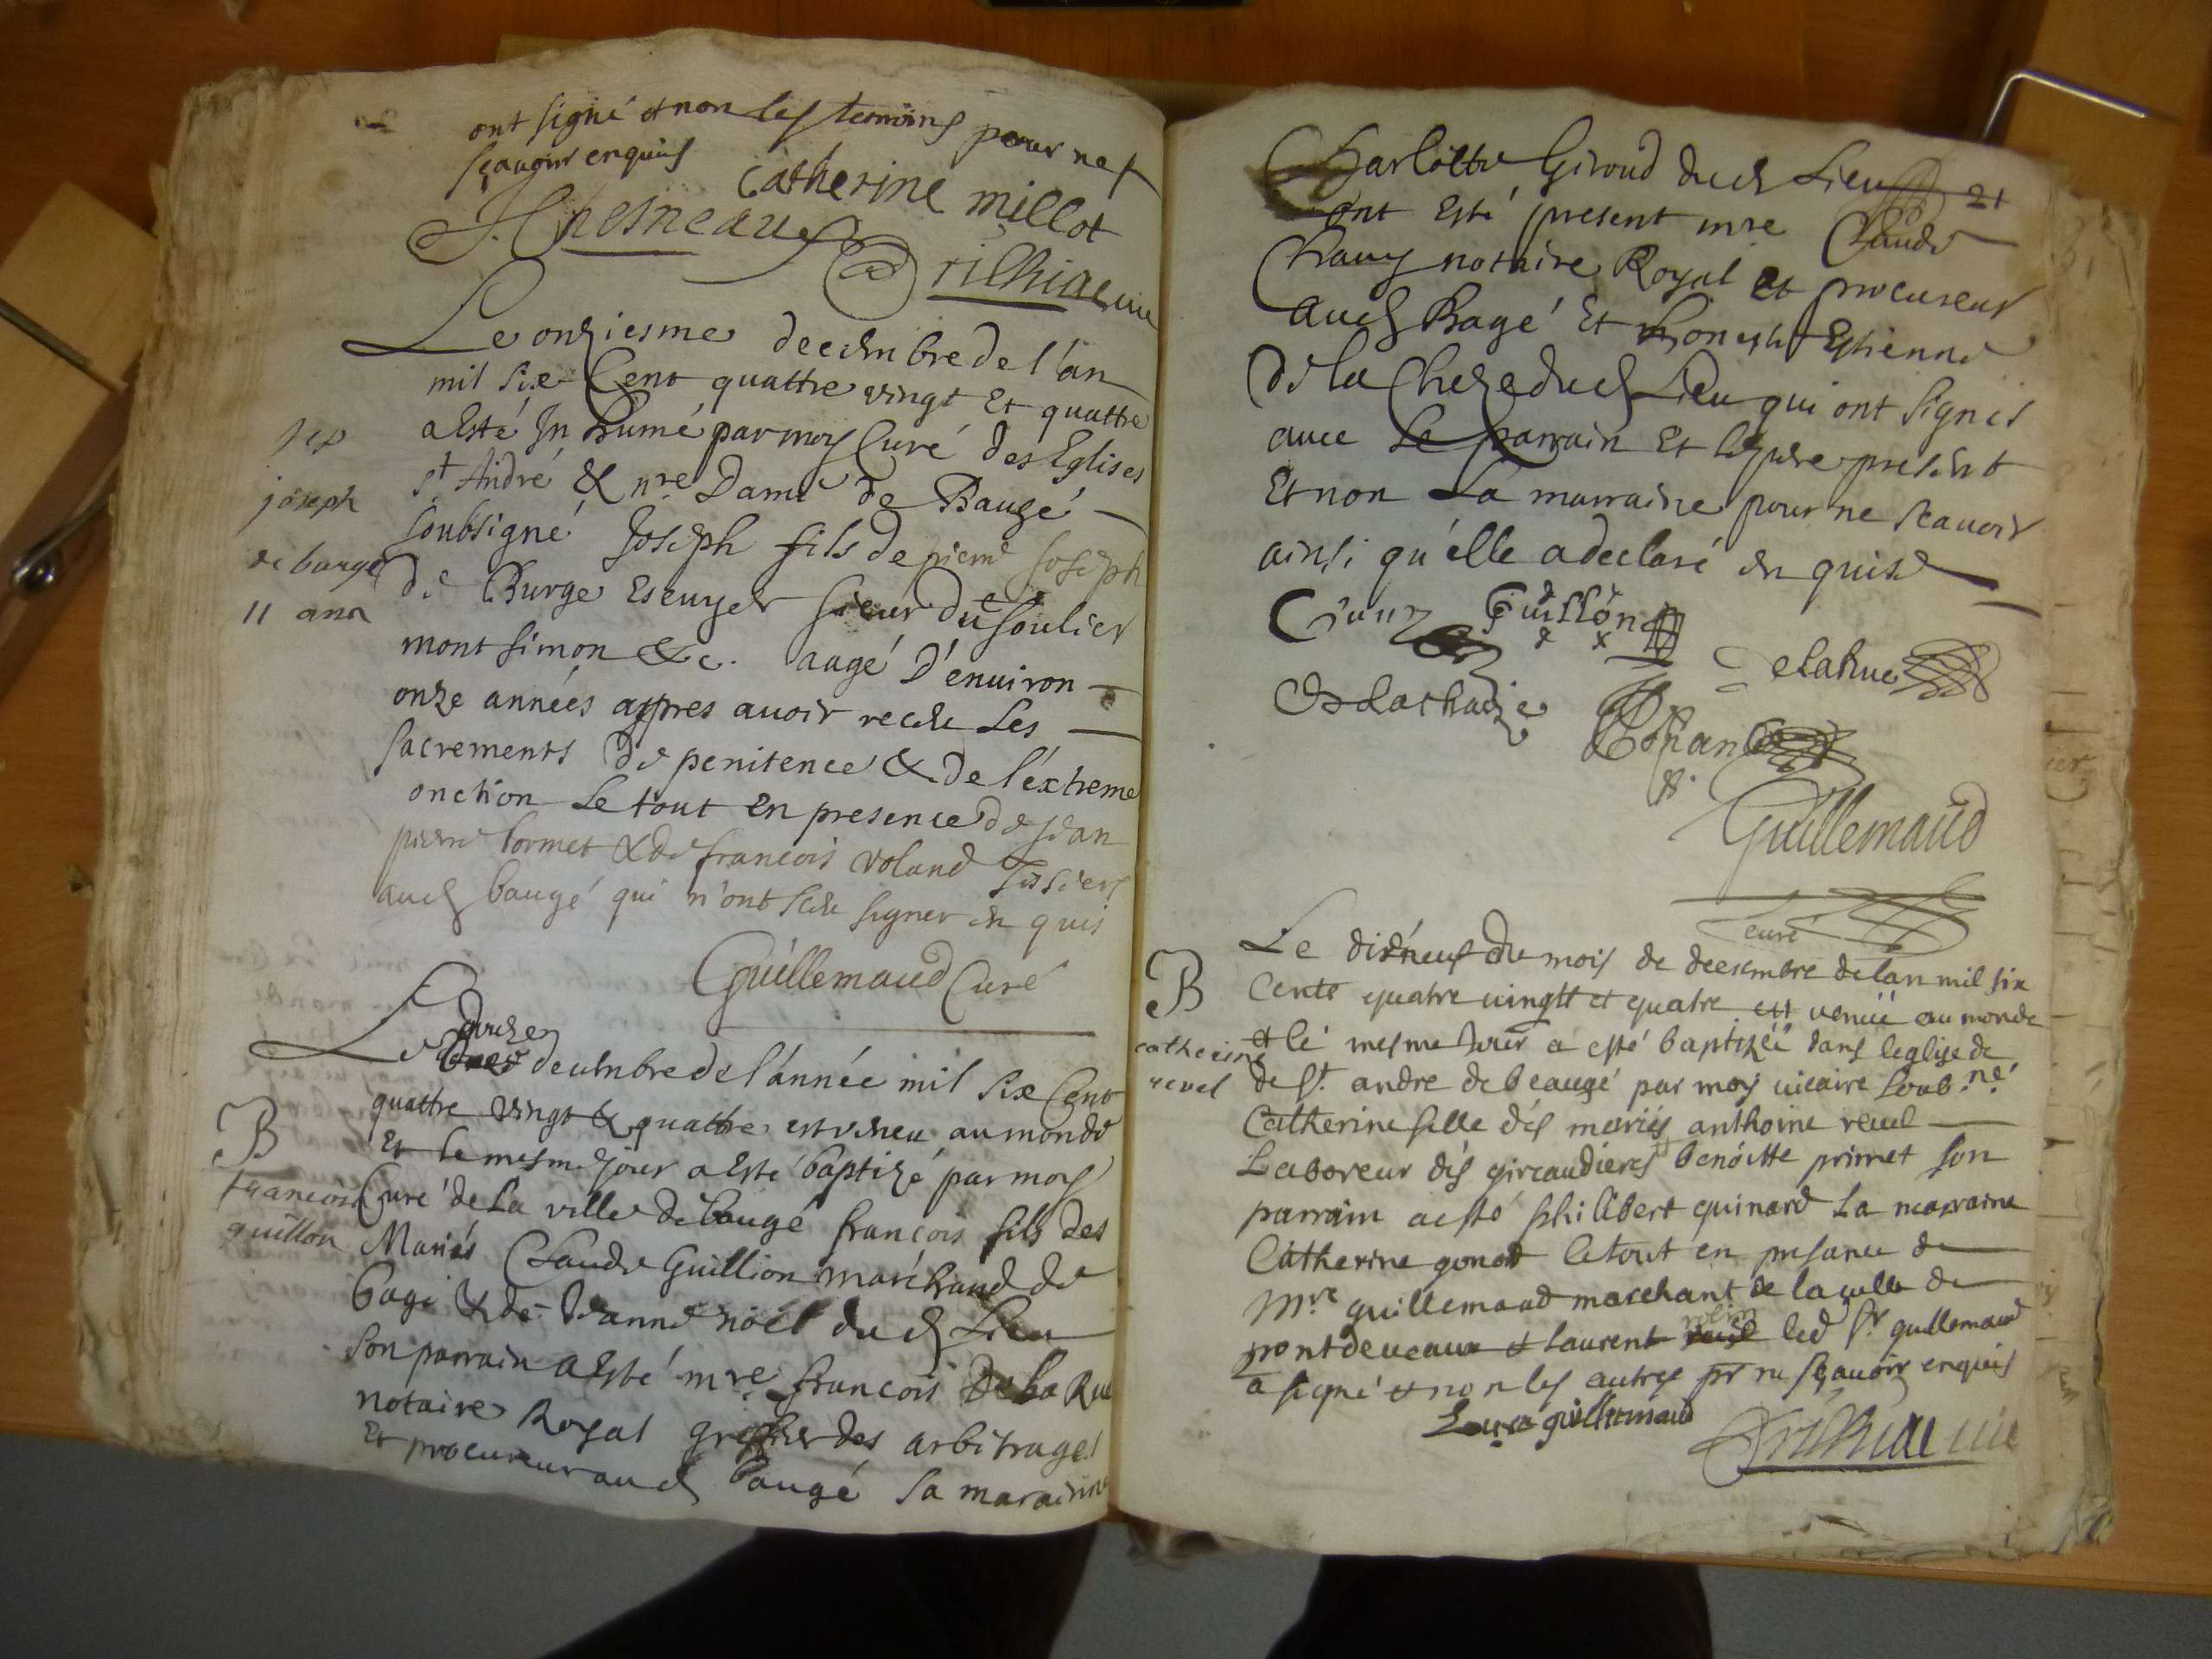 ont signé et non les temoins pour ne
sçavoir enquis
Catherine millot
Chesneau
Le onziesme decembre de l'an
mil six Cent quattre vingt Et quattre
a Esté Inhumé par moy Curé des Eglises
st André & nre Dame de Baugé
soubsigné Joseph fils de pierre Joseph
de Burge Escuyer sieur du soulier
mont simon &c. aagé d'environ
onze années appres avoir receu Les
sacrements de penitence & de l'extreme
onction Le tout En presence de Jean
pierre bormet & de francois voland
aud baugé qui n'ont sceu signer en quis
Guillemaud Curé
sep
joseph
de burge
11 ans
Le douze
decembre de l'année mil six Cent
quattre vingt & quattre est veneu au monde
Et le mesme jour a Esté baptizé par moy
Curé de La ville de baugé françois fils des
Mariés Claude Guillion marchand de
bagé & de Jeanne noël dud Lieu
son parrain a Esté mre francois De La Rue
notaire Royal greffier des arbitrages
Et procureur aud baugé sa maraine
B
francois
guillon
21
Charlotte Giroud dud Lieu
ont Esté present mre Claude
Chauy notaire Royal et procureur
aud Bagé Et honeste Estienne
De la Cheze dud Lieu qui ont signés
avec Le parrain Et le pere present
Et non La marraine pour ne scavoir
ainsi qu'elle a declaré en quise
Guillon
Delarue
Guillemaud
curé
Le dixneuf du mois de decembre de lan mil six
Cents quatre vingtt et quatre est venüe au monde
et le mesme jour a esté baptizée dans leglise de
de St. andre de beaugé par moy vicaire soub.né
Catherine fille des mariés anthoine revel
Laboreur des gircaudieres benoitte primet son
parrain a esté philibert quinard La marraine
Catherine gonod le tout en presance de
Mre guillemaud marchant de la ville de
pont de veaux et laurent led Sr guillemaud
a signé et non les autres pr ne sçavoir enquis
guillemaud
B
catherine
revel